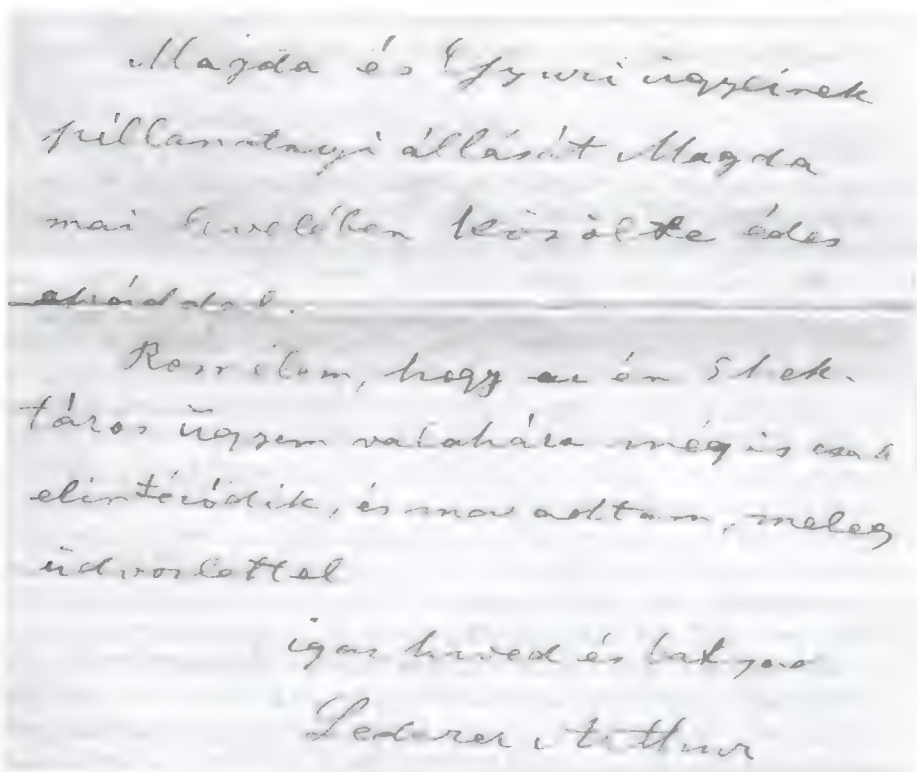 Magda és Gyuri ügyeinek
pillanatnyi állását Magda
mai levelében közölte édes
Remélem, hogy az én 5 hek-
táros ügyem valahára mégis csak
elintéződik, és maradtam, meleg
üdvözlettel
igaz híved és bátyád
Lederer Arthur